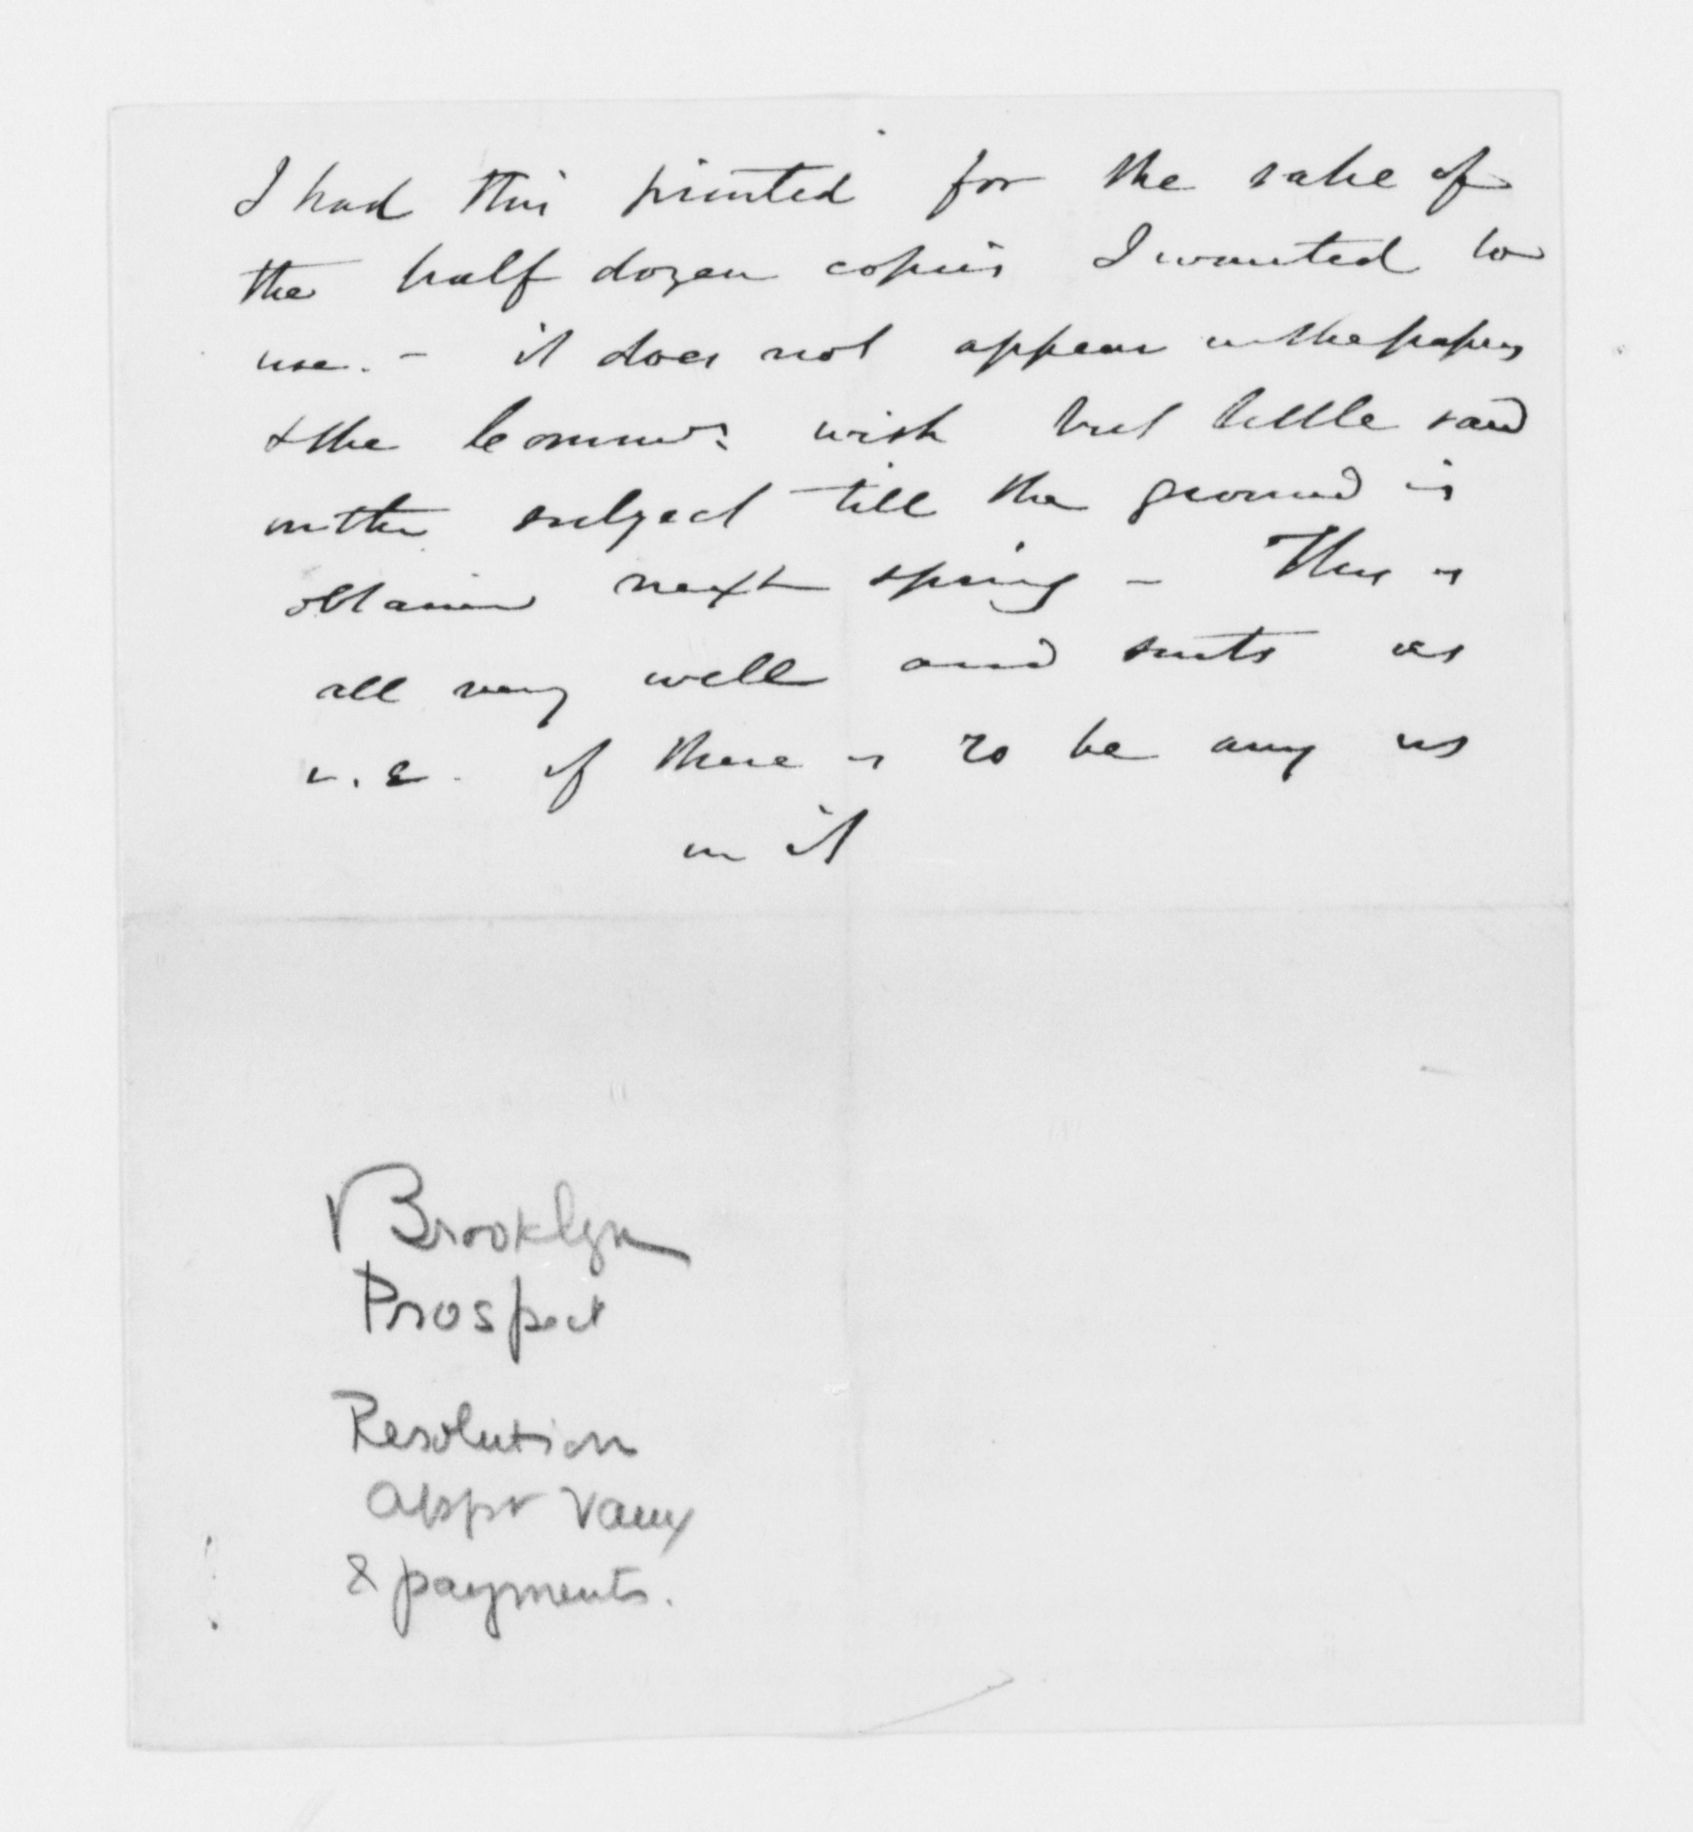 I had this printed for the sake of
the half dozen copies I wanted to
use. - it does not appear in the papers
& the Commrs. wish but little said
on the subject till the ground is
obtained next spring - This is
all very well and suits us
if there is to be any us
in it
Brooklyn
Prospect
Resolution
appr Vaux
& payments.